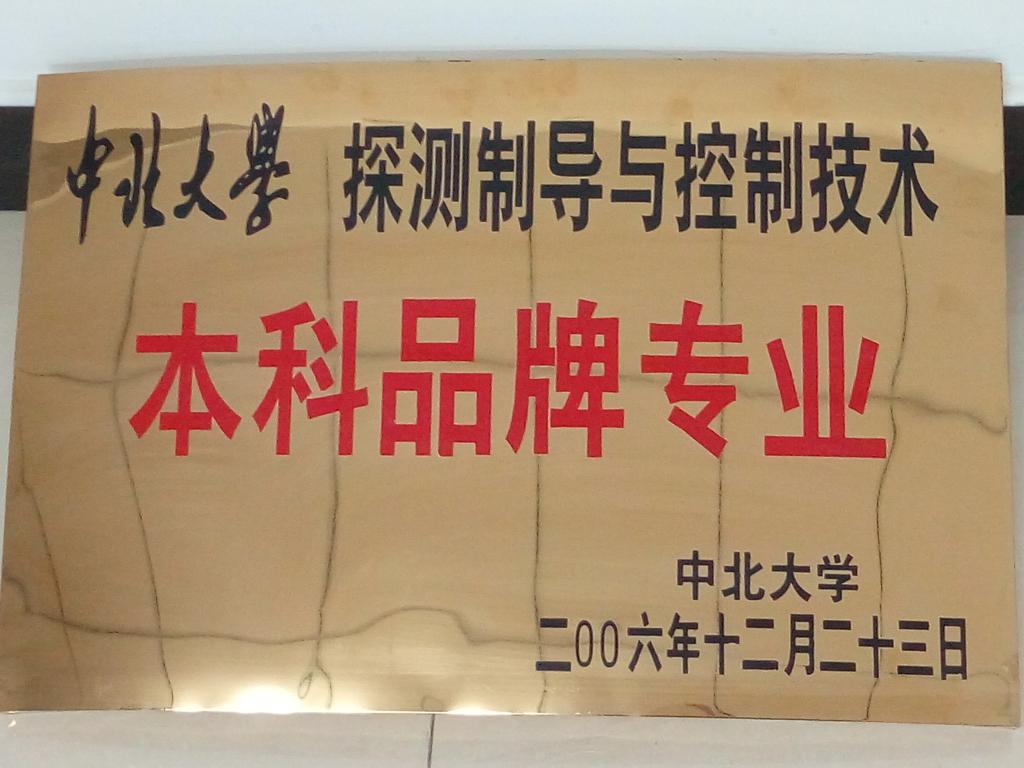 中北大學 探测制导与控制技术
本科品牌专业
中北大学
二00六年十二月二十三日